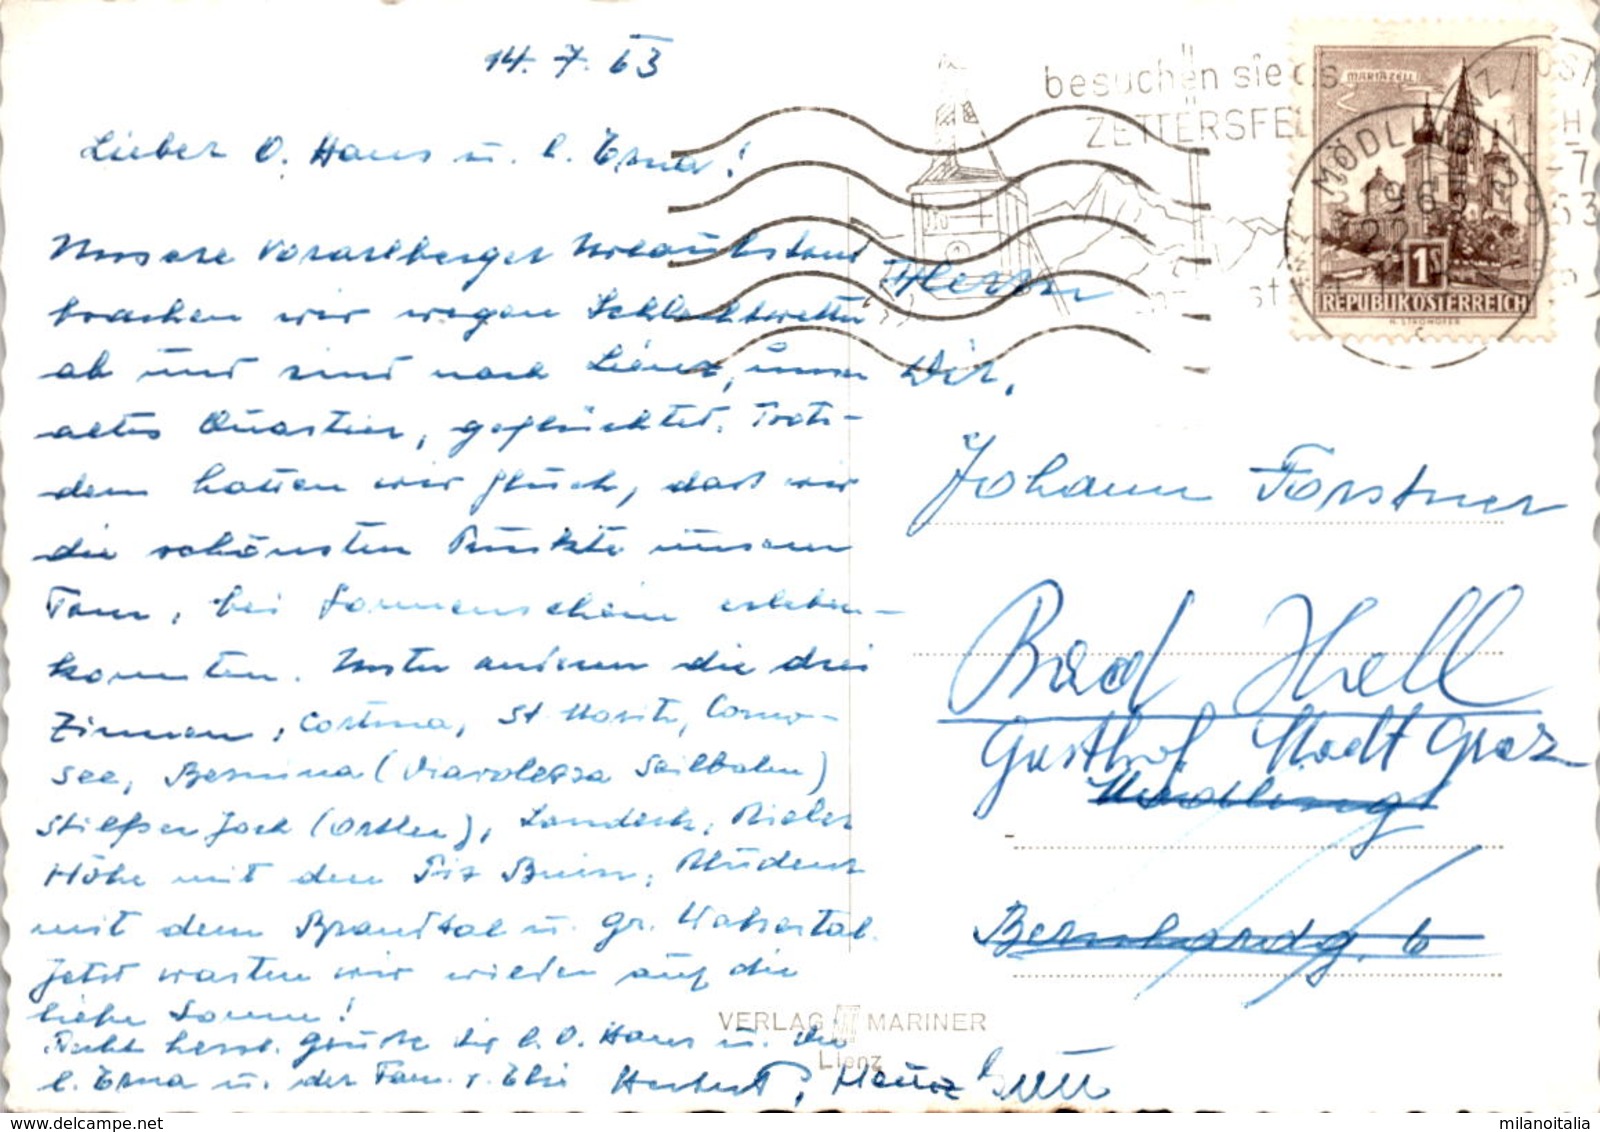 14. 7. 63
Lieber O. Hans u. l. Erna!
Unsere Vorarlberger Urlaubs
brachen wir wegen Schlechtwetter
ab und sind nach Lienz, unser
altes Quartier, geflüchtet. Trotz-
dem hatten wir Glück, dass wir
die schönsten Punkte unserer
Tour, bei Sonnenschein erleben-
konnten. Unter anderem die drei
Zinnen, Cortina, St. Moritz, Como-
see, Bernina (Diavolezza Seilbahn)
Stilfser Joch (Ortler), Landeck, Bieler
Höhe mit dem Piz Buin, Bludenz
mit dem Brandtal u. gr. Walsertal.
Jetzt warten wir wieder auf die
liebe Sonne!
Recht herzl. Grüße dir l. O. Hans u. der
l. Erna u. der Fam. v. Herbert,
besuchen sie das
ZETTERSFELD
MARIAZELL
1S
REPUBLIK ÖSTERREICH
MÖDLING
Herrn
Dir.
Johann Forstner
Bad Hall
Gasthof Stadt Graz
Mödling
Bernhardg. 6
VERLAG MARINER
Lienz
milanoitalia